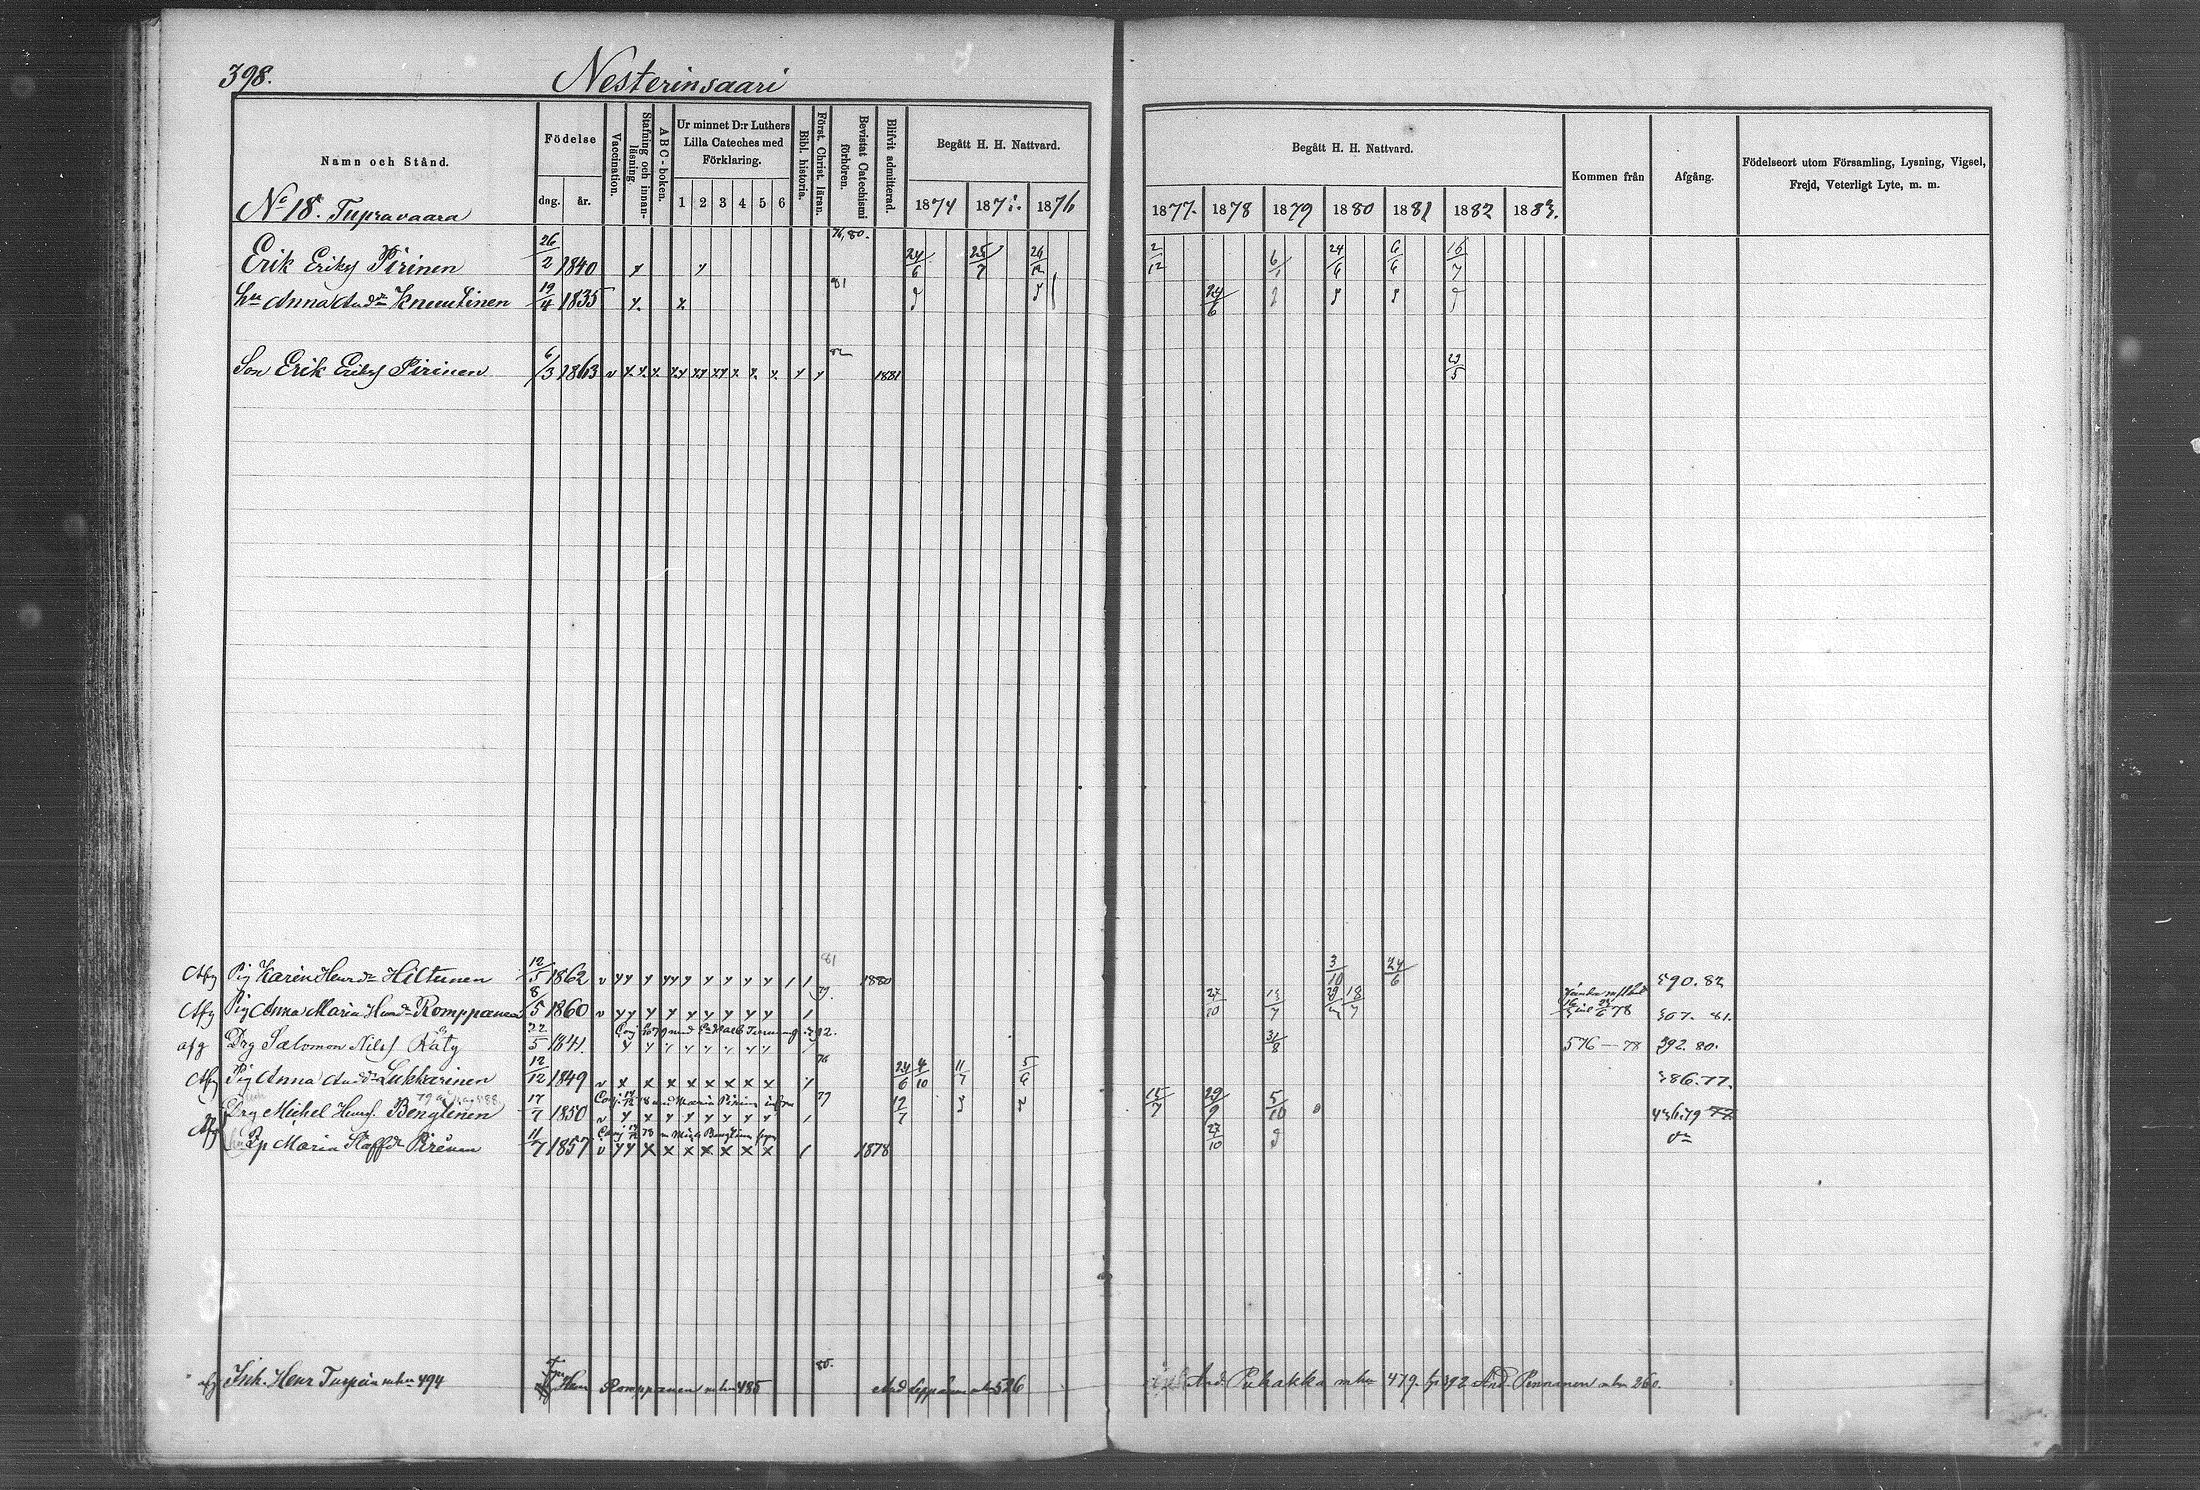 398. Nesterinsaari
Namn och Stånd. Födelse dag. år. Vaccination. Stafning och innanläsning A B C-boken. Ur minnet D:r Luthers Lilla Cateches med Förklaring. 1 2 3 4 5 6 Bibl. historia. Först. Christ. läran. Bevistat Catechismi förhören. Blifvit admitterad. Begått H. H. Nattvard. 1874 187 1876
Begått H. H. Nattvard. 1877. 1878 1879 1880 1881 1882 1883. Kommen från Afgång. Födelseort utom Församling, Lysning, Vigsel, Frejd, Veterligt Lyte, m. m.
No 18. Tupravaara
76, 80.
Erik Eriks Pirinen 26/2 1840 24/6 25/7 2/12 6/1 24/6 6/6 16/7
81
Hu Anna Andr Knuutinen 19/4 1835 24/6
82
Son Erik Eriks Pirinen 6/3 1863 v 1881 29/5
81
Afg Pig Karin Henr dr Hiltunen 12/5 1862 v 1880 3/10 24/6 590. 82
79.
Afg Pig Anna Maria Henr dr Romppanen 8/5 1860 v 27/10 78 507. 81.
afg Drg Salomon Nils Räty 22/5 1841. 31/8 576 — 78 292. 80.
76
Afg Pig Anna And dr Lukkarinen 12/12 1849 v 24/6 4/10 11/7 5/6 386. 77.
79
Drg Michel Henr. Bengtinen 17/7 1850 v 12/7 15/7 29/9 5/10 436. 79
Afg Pp Maria Staff dr Pirinen 11/7 1857. v 1878 27/10
80.
afg Inh. Henr Turpein mhu 494 Henr Romppanen mhu 485 And Leppänen mhu 526 And. Pukakka mhu 479. And. Pennanen mhu 260.